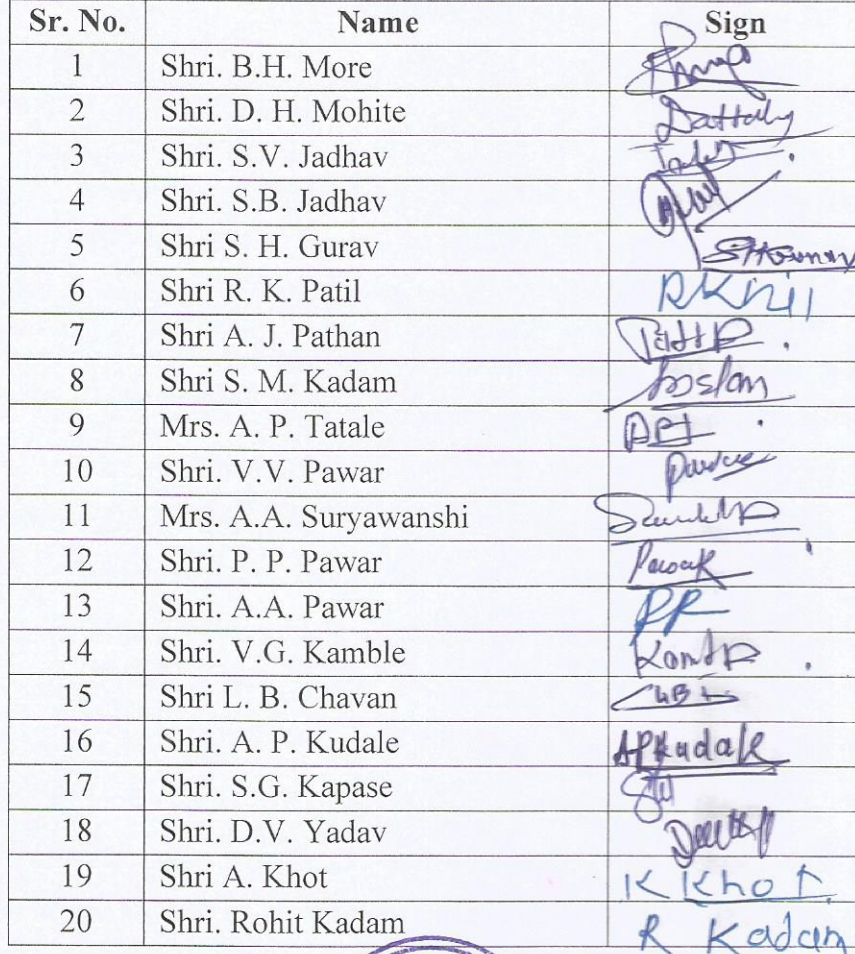 Sr. No. Name Sign
1 Shri. B.H. More
2 Shri. D. H. Mohite Dattaly
3 Shri. S.V. Jadhav
4 Shri. S.B. Jadhav
5 Shri S. H. Gurav
6 Shri R. K. Patil
7 Shri A. J. Pathan
8 Shri S. M. Kadam
9 Mrs. A. P. Tatale
10 Shri. V.V. Pawar
11 Mrs. A.A. Suryawanshi
12 Shri. P. P. Pawar
13 Shri. A.A. Pawar PP
14 Shri. V.G. Kamble
15 Shri L. B. Chavan
16 Shri. A. P. Kudale APKudale
17 Shri. S.G. Kapase
18 Shri. D.V. Yadav
19 Shri A. Khot K Khot
20 Shri. Rohit Kadam R Kadam